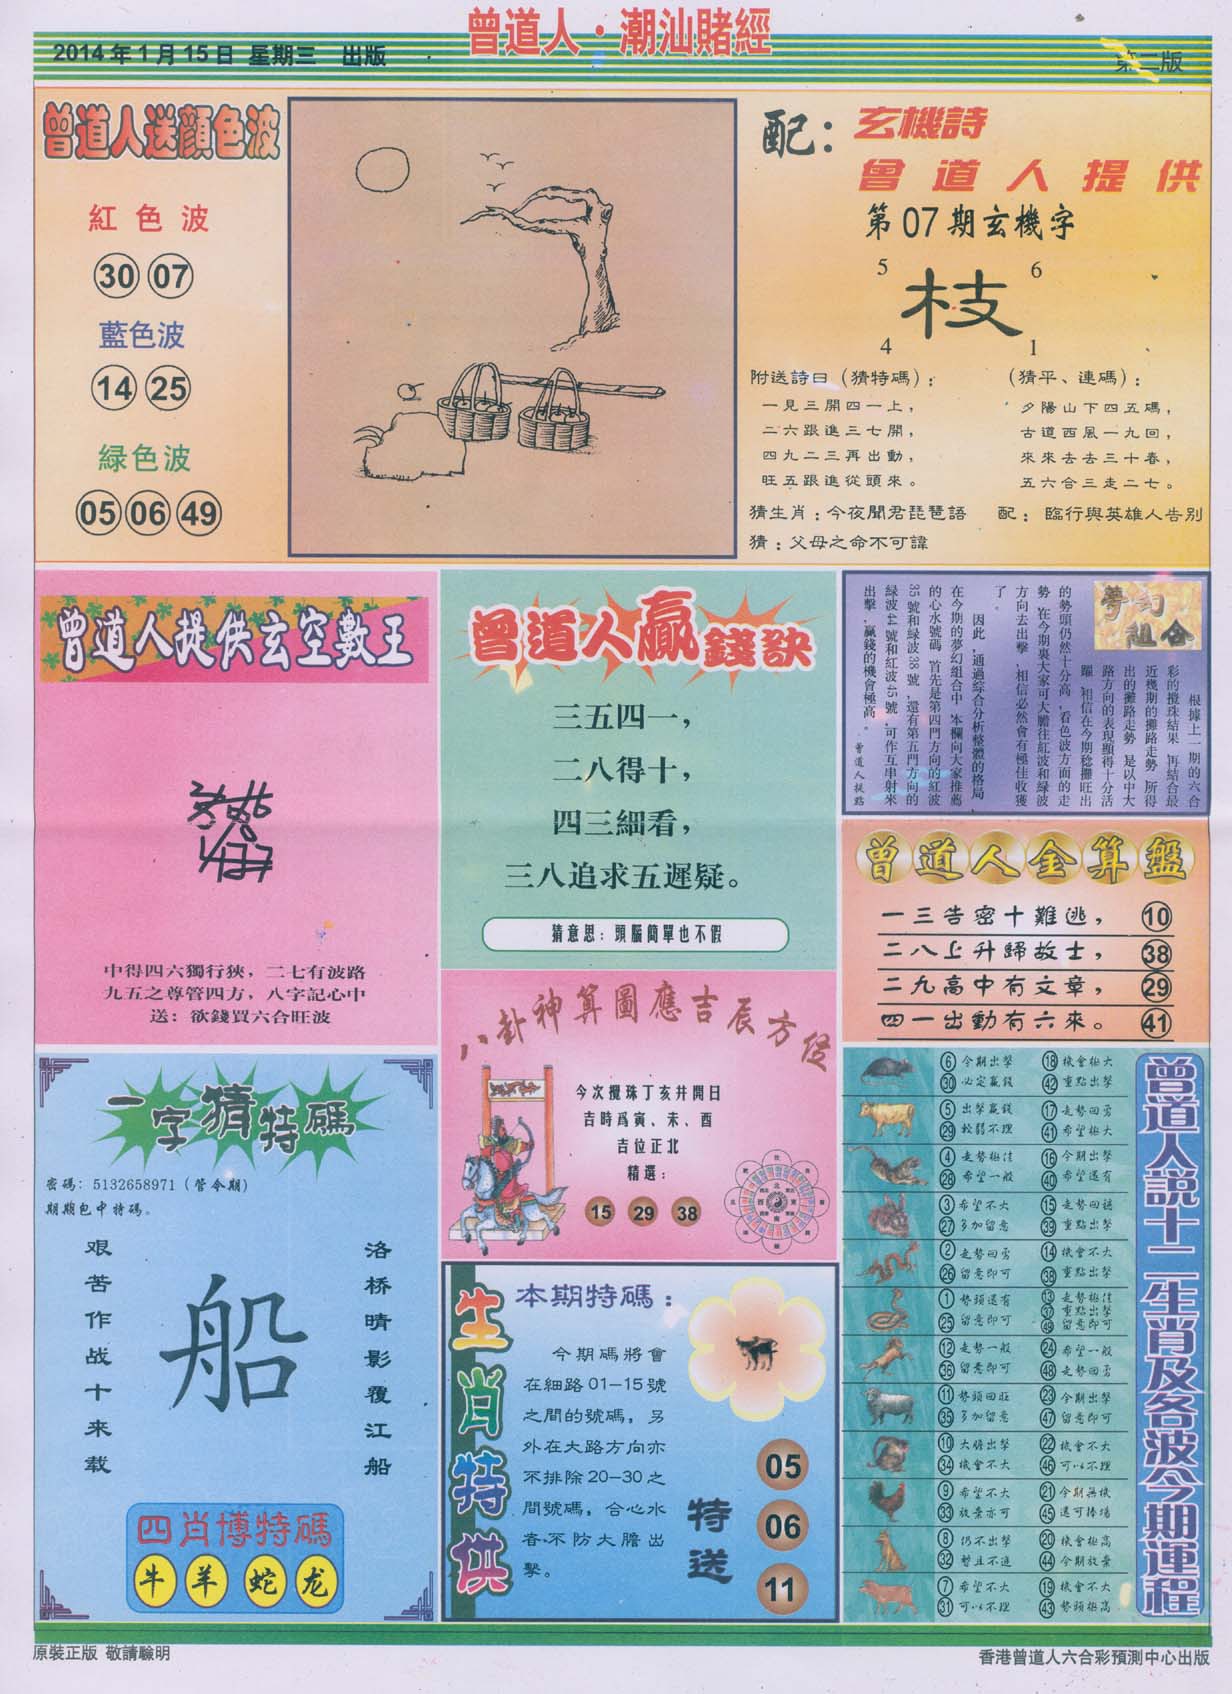 曾道人·潮汕賭經
2014年1月15日 星期三 出版
第二版
曾道人送顔色波
紅色波
30 07
藍色波
14 25
緑色波
05 06 49
配：
玄機詩
曾道人提供
第07期玄機字
5 6
枝
4 1
附送詩曰（猜特碼）：
一見三開四一上，
二六跟進三七開，
四九二三再出動，
旺五跟進從頭來。
（猜平、連碼）：
夕陽山下四五碼，
古道西風一九回，
來來去去三十春，
五六合三走二七。
猜生肖：今夜聞君琵琶語
配：臨行與英雄人告別
猜：父母之命不可諱
曾道人提供玄空數王
中得四六獨行狹，二七有波路
九五之尊管四方，八字記心中
送：欲錢買六合旺波
曾道人贏錢訣
三五四一，
二八得十，
四三細看，
三八追求五遲疑。
猜意思：頭腦簡單也不假
夢幻組合
根據上一期的六合
彩的攪珠結果，再結合最
近幾期的攤路走勢，所得
出的攤路走勢，是以中大
路方向的表現顯得十分活
躍，相信在今期稔攤旺出
的勢頭仍然十分高，看色波方面的走
勢，在今期裏大家可大膽往紅波和緑波
方向去出擊，相信必然會有極佳收獲
了。
因此，通過綜合分析整體的格局，
在今期的夢幻組合中，本欄向大家推薦
的心水號碼，首先是第四門方向的紅波
35號和緑波38號，還有第五門方向的
緑波44號和紅波45號，可作互串射來
出擊，贏錢的機會極高。
曾道人提點
曾道人金算盤
一三告密十難逃， 10
二八上升歸故士， 38
二九高中有文章， 29
四一出動有六來。 41
八卦神算圖應吉辰方位
今次攪珠丁亥井開日
吉時爲寅、未、酉
吉位正北
精選：
15 29 38
一字猜特碼
密碼：5132658971（管今期）
期期包中特碼。
艰苦作战十来载
船
洛桥晴影覆江船
四肖博特碼
牛 羊 蛇 龙
生肖特供
本期特碼：
今期碼將會
在細路01-15號
之間的號碼，另
外在大路方向亦
不排除20-30之
間號碼，合心水
者不防大膽出
擊。
特送
05
06
11
曾道人説十二生肖及各波今期運程
6 今期出擊 18 機會極大
30 必定贏錢 42 重點出擊
5 出擊贏錢 17 走勢回勇
29 較弱不理 41 希望極大
4 走勢極佳 16 今期出擊
28 希望一般 40 希望還有
3 希望不大 15 走勢回穩
27 多加留意 39 重點出擊
2 走勢回勇 14 機會不大
26 留意即可 38 重點出擊
1 勢頭還有 13 走勢極佳
37 重點出擊
25 留意即可 49 留意即可
12 走勢一般 24 希望一般
36 留意即可 48 走勢回勇
11 勢頭回旺 23 今期出擊
35 多加留意 47 留意即可
10 大膽出擊 22 機會不大
34 機會不大 46 可以不理
9 希望不大 21 今期無機
33 放棄亦可 45 還可捧場
8 仍不出擊 20 機會極高
32 暫且不追 44 今期放棄
7 希望不大 19 機會不大
31 可以不理 43 勢頭極高
原裝正版 敬請驗明
香港曾道人六合彩預測中心出版